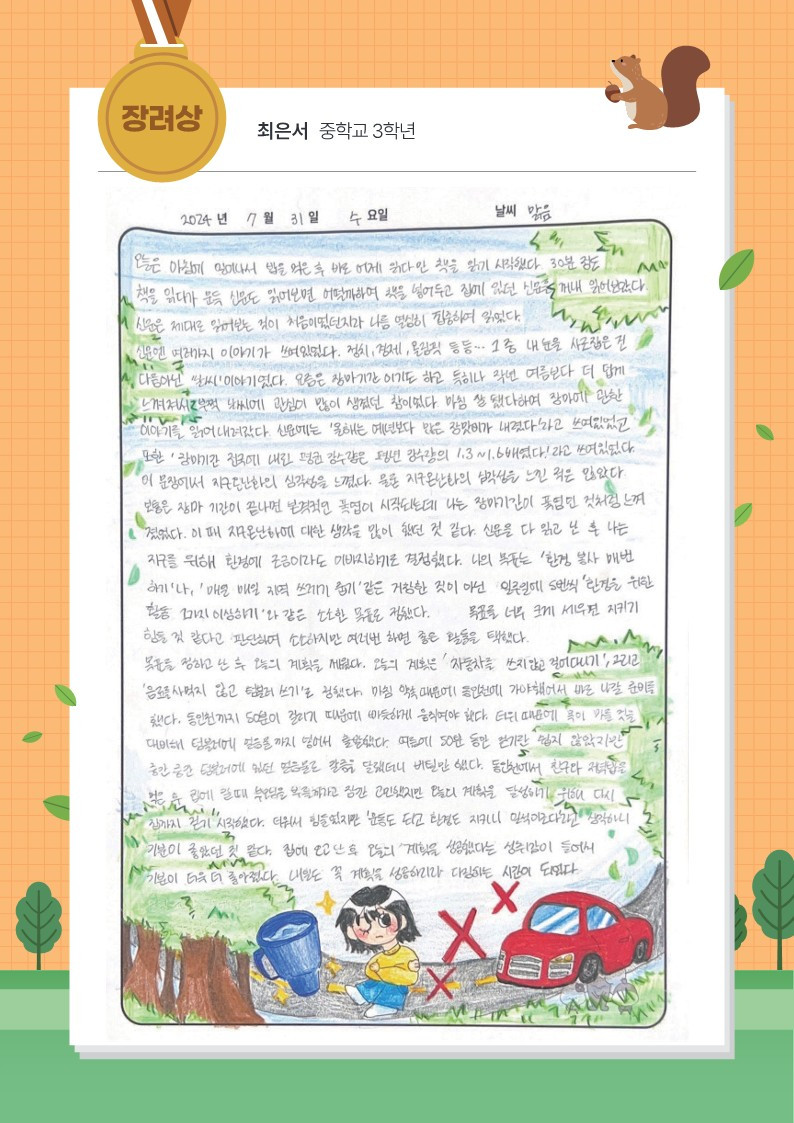 장려상
최은서 중학교 3학년
2024 년 7 월 31 일 수 요일 날씨 맑음
오늘은 아침에 일어나서 밥을 먹은 후 바로 어제 읽다 만 책을 읽기 시작했다. 30분 정도
책을 읽다가 문득 신문도 읽어보면 어떨까하여 책을 덮어두고 집에 있던 신문을 꺼내 읽어보았다.
신문은 제대로 읽어보는 것이 처음이었던지라 나름 열심히 집중하여 읽었다.
신문엔 여러가지 이야기가 쓰여있었다. 정치, 경제, 올림픽 등등… 그 중 내 눈을 사로잡은 건
다름아닌 '날씨' 이야기였다. 요즘은 장마기간이기도 하고 특히나 작년 여름보다 더 덥게
느껴져서 부쩍 날씨에 관심이 많이 생겼던 참이었다. 마침 잘 됐다하여 장마에 관한
이야기를 읽어내려갔다. 신문에는 '올해는 예년보다 많은 장맛비가 내렸다'라고 쓰여있었고
또한 '장마기간 전국에 내린 평균 강수량은 평년 강수량의 1.3~1.6배였다!'라고 쓰여있었다.
이 문장에서 지구온난화의 심각성을 느꼈다. 물론 지구온난화의 심각성을 느낀 적은 많았다.
보통은 장마 기간이 끝나면 본격적인 폭염이 시작되는데 나는 장마기간이 폭염인 것처럼 느껴
졌었다. 이 때 지구온난화에 대한 생각을 많이 했던 것 같다. 신문을 다 읽고 난 후 나는
지구를 위해 환경에 조금이라도 이바지하기로 결정했다. 나의 목표는 '환경 봉사 매번
하기'나, '매일 매일 지역 쓰레기 줍기' 같은 거창한 것이 아닌 '일주일에 5번씩 환경을 위한
활동 1가지 이상하기'와 같은 소소한 목표로 정했다. 목표를 너무 크게 세우면 지키기
힘들 것 같다고 판단하여 소소하지만 여러번 하면 좋은 활동을 택했다.
목표를 정하고 난 후 오늘의 계획을 세웠다. 오늘의 계획은 '자동차를 쓰지않고 걸어다니기', 그리고
'음료를 사먹지 않고 텀블러 쓰기'로 정했다. 마침 약속 때문에 동인천에 가야했어서 바로 나갈 준비를
했다. 동인천까지 50분이 걸리기 때문에 빠듯하게 움직여야 했다. 더위 때문에 목이 마를 것을
대비해 텀블러에 얼음물까지 넣어서 출발했다. 여름에 50분 동안 걷기란 쉽지 않았지만
중간 중간 텀블러에 있던 얼음물로 갈증을 달랬더니 버틸만 했다. 동인천에서 친구와 저녁밥을
먹은 후 집에 갈 때 부모님을 부를까하고 잠깐 고민했지만 오늘의 계획을 달성하기 위해 다시
집까지 걷기 시작했다. 더워서 힘들었지만 '운동도 되고 환경도 지키니 일석이조다'라고 생각하니
기분이 좋았던 것 같다. 집에 오고 난 후 오늘의 계획을 성공했다는 성취감이 들어서
기분이 더욱 더 좋아졌다. 내일도 꼭 계획을 성공하리라 다짐하는 시간이 되었다.